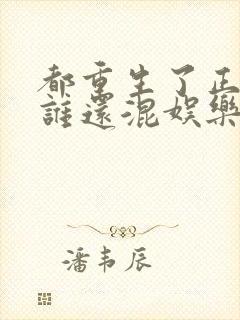 都重生了正
誰還混娛樂
潘韋辰